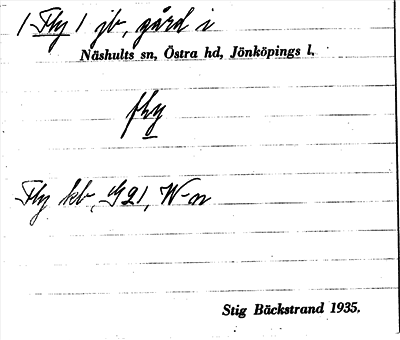 1 Fly 1 jb, gård i
Näshults sn, Östra hd, Jönköpings l.
fly
Fly kb, G21, W-n
Stig Bäckstrand 1935.